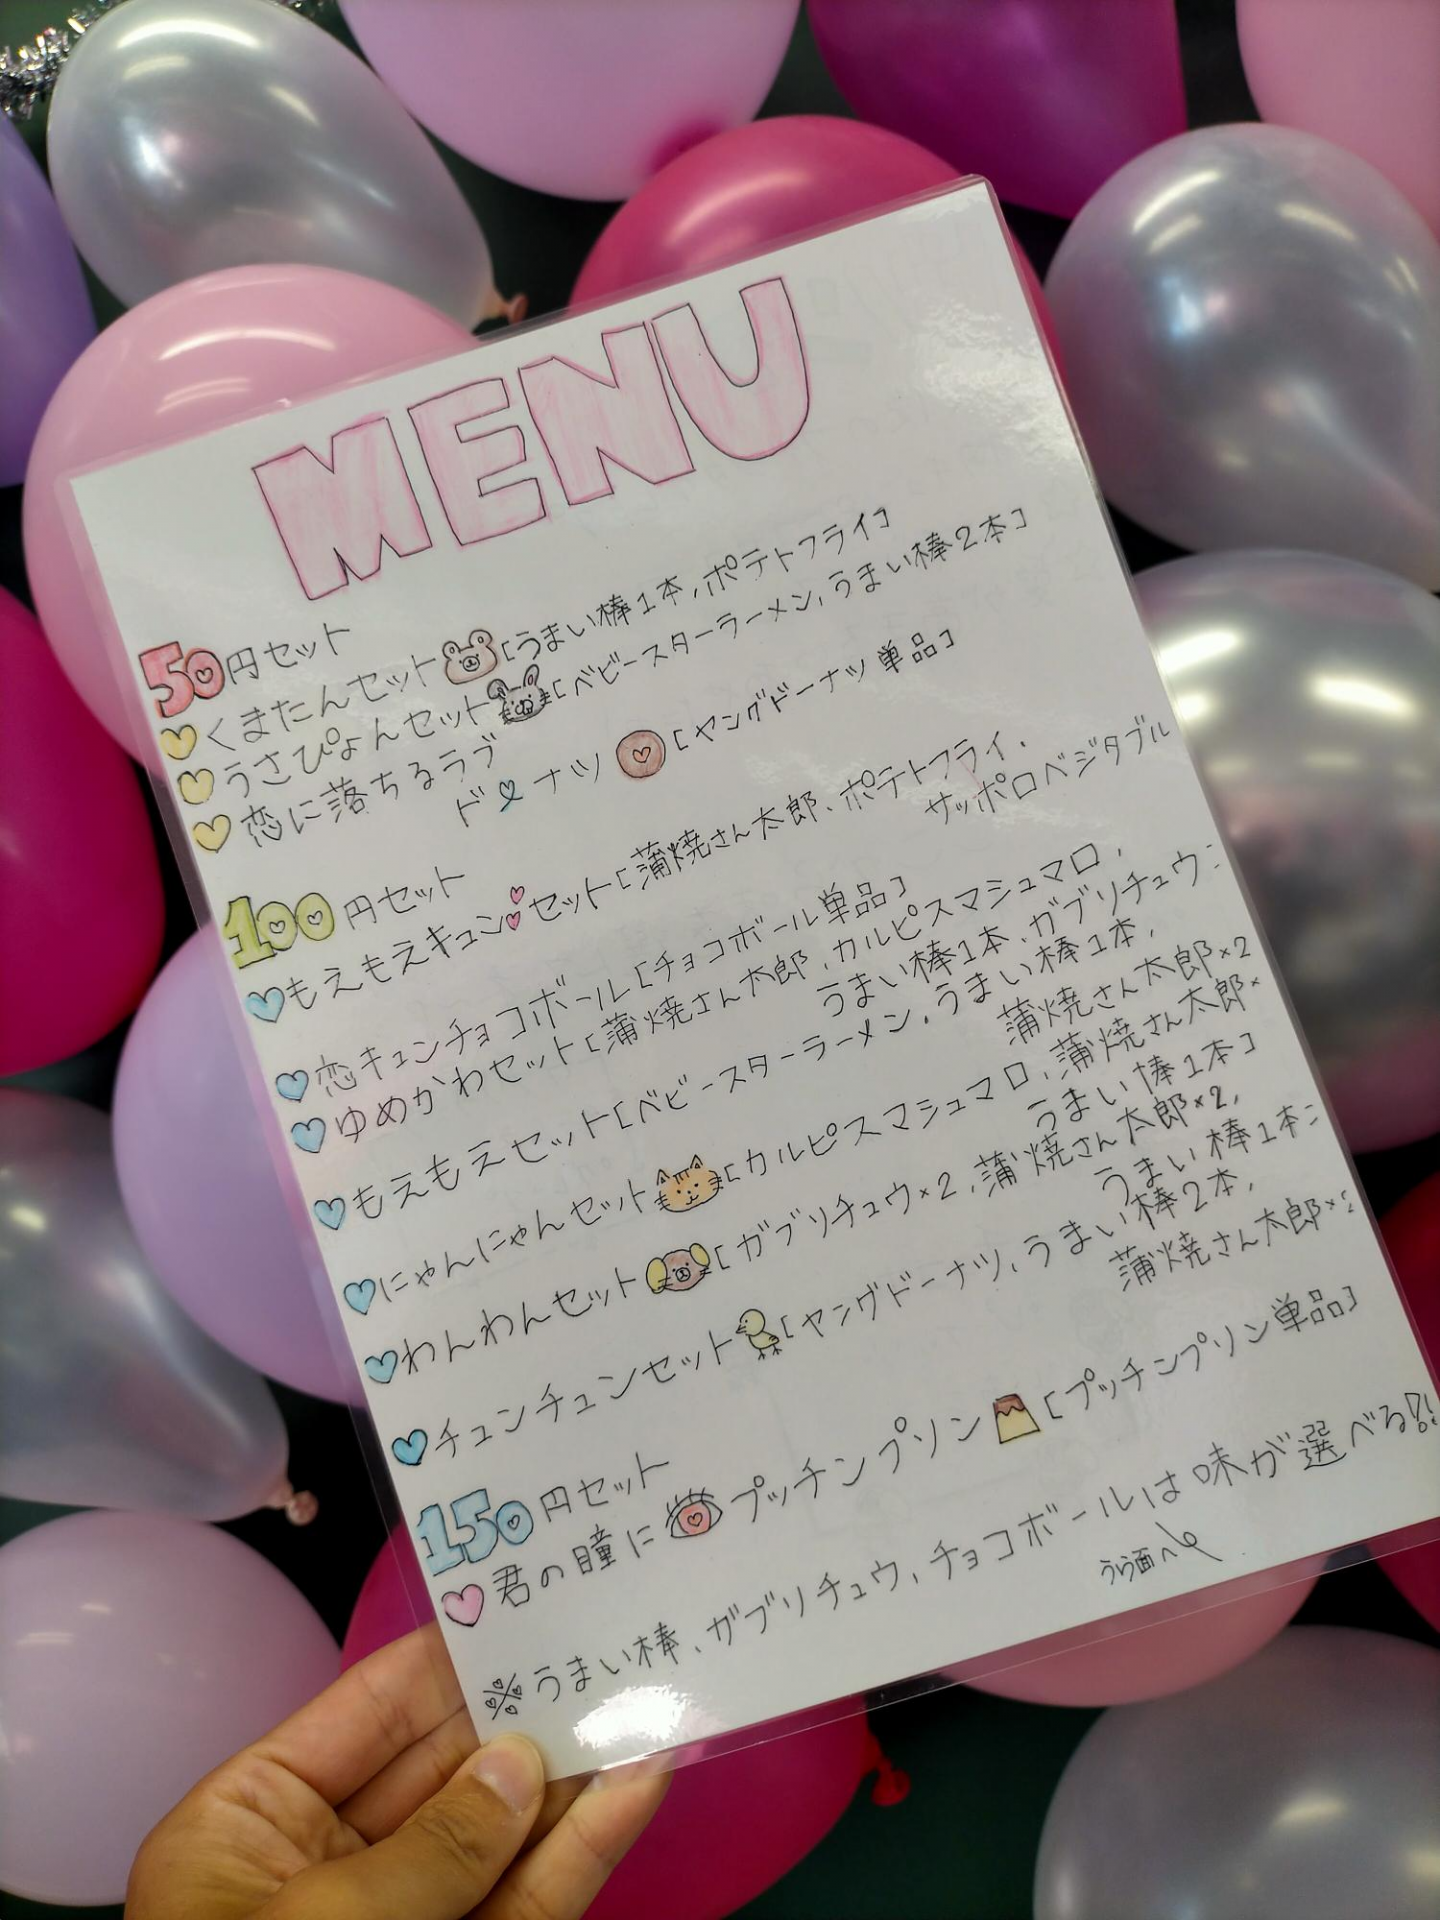 MENU
50円セット
くまたんセット[うまい棒1本,ポテトフライ]
うさぴょんセット[ベビースターラーメン,うまい棒2本]
恋に落ちるラブ
ドーナツ[ヤングドーナツ単品]
100円セット
もえもえキュンセット[蒲焼さん太郎、ポテトフライ、
サッポロベジタブル
恋キュンチョコボール[チョコボール単品]
ゆめかわセット[蒲焼さん太郎,カルピスマシュマロ,
うまい棒1本、ガブリチュウ]
もえもえセット[ベビースターラーメン,うまい棒1本,
蒲焼さん太郎×2
にゃんにゃんセット[カルピスマシュマロ,蒲焼さん太郎×
うまい棒1本]
わんわんセット[ガブリチュウ×2,蒲焼さん太郎×2,
うまい棒1本]
チュンチュンセット[ヤングドーナツ,うまい棒2本,
蒲焼さん太郎×2
150円セット
君の瞳にプッチンプリン[プッチンプリン単品]
※うまい棒、ガブリチュウ、チョコボールは味が選べる!!
うら面へ